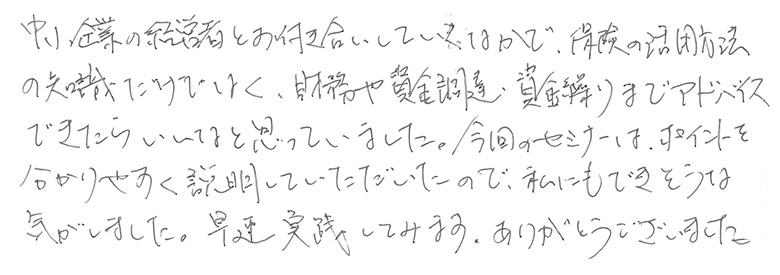 中小企業の経営者とお付き合いしているなかで、保険の活用方法
の知識だけでなく、財務や資金調達、資金繰りまでアドバイス
できたらいいなと思っていました。今回のセミナーは、ポイントを
分かりやすく説明していただいたので、私にもできそうな
気がしました。早速実践してみます。ありがとうございました。